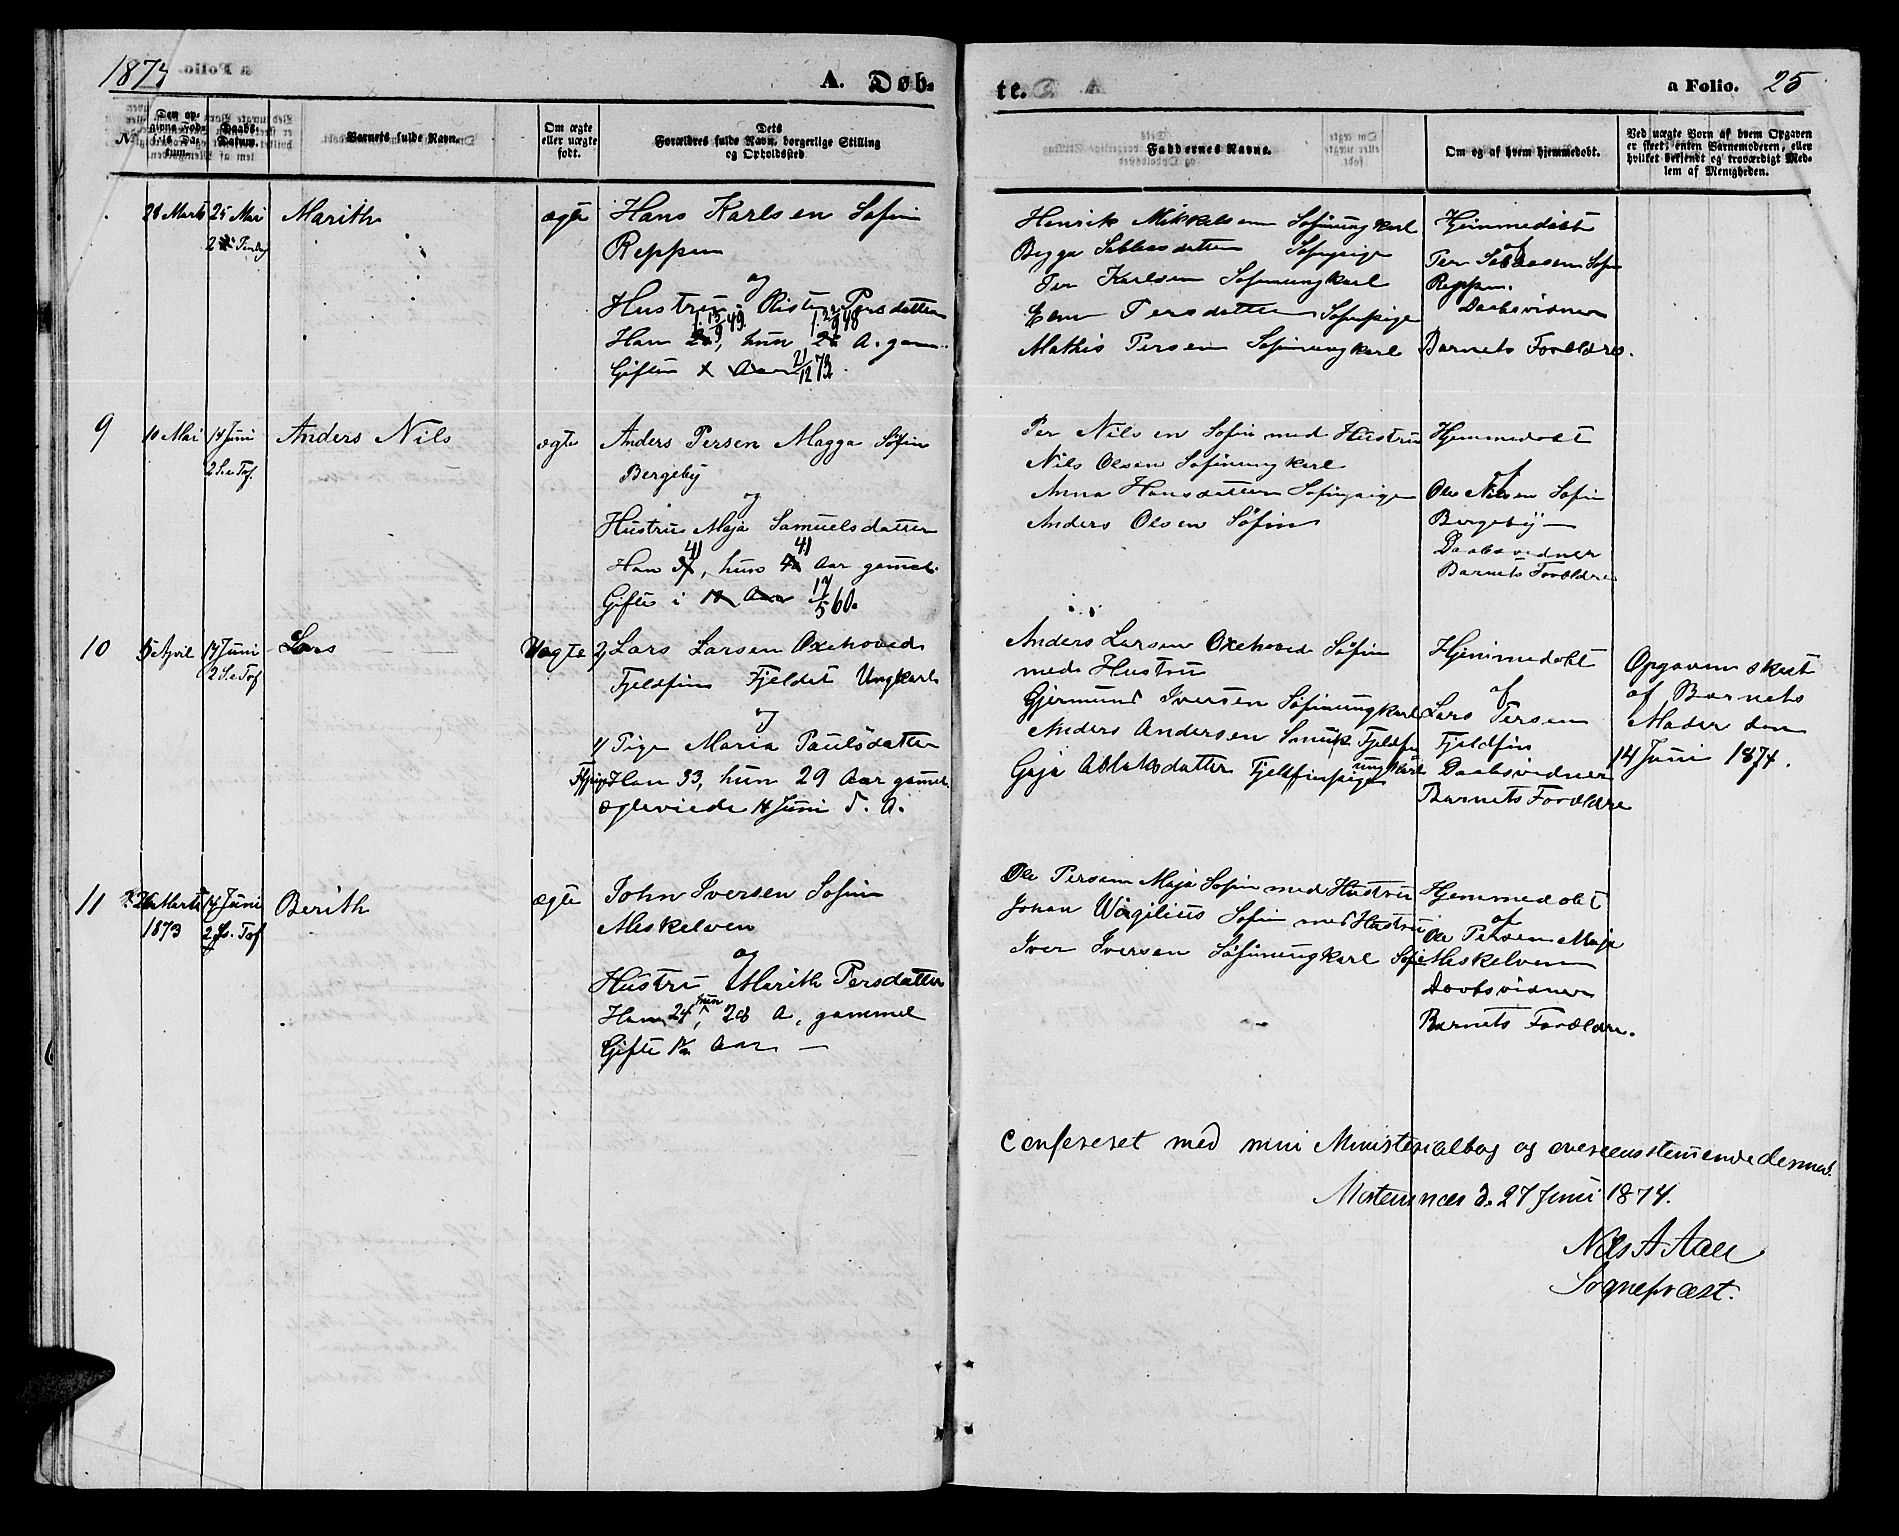 1874
A. Døb-
te.
a Folio. 25
No.
Den op-
givne Føds-
els Da-
tum.
Daabs-
Datum.
Barnets fulde Navn.
Om ægte
eller uægte
født.
Dets
Forældres fulde Navn, borgerlige Stilling
og Opholdssted
Faddernes Navne.
Om og af hvem hjemmedøbt.
Ved uægte Børn af hvem Opgaven
er skeet; enten Barnemoderen, eller
hvilket bekjendt og troværdigt Med-
lem af Menigheden.
28 Marts
25 Mai
Marith
ægte
Hans Karlsen Søfin
Reppen
og
Hustru Persdatter
Han hun A. gam.
Gifte 21/12 73.
Henrik Mikkelsen Søfinungkarl
Bigga Søfinpige
Per Karlsen Søfinungkarl
Persdatter Søfinpige
Mathis Persen Søfinungkarl
Hjemmedøbt
af
Per Søfin
Reppen.
Daabsvidner
Barnets Forældre.
9
10 Mai
14 Juni
2 S. e. Tref.
Anders Nils
ægte
Anders Persen Magga Søfin
Bergeby
og
Hustru Maja Samuelsdatter
Han 41, hun 41 Aar gamel.
Gifte i 17/5 60.
Per Nilsen Søfin med Hustru
Nils Olsen Søfinungkarl
Anna Hansdatter Søfinpige
Anders Olsen Søfin
Hjemmedøbt
af
Ole Nilsen Søfin
Bergeby
Daabsvidner
Barnets Forældre
10
5 April
14 Juni
2 S. e. Tref
Lars
Uægte
2, Lars Larsen Oxehoved
Fjeldfin Fjeldet Ungkarl
og
1, Pige Maria Paulsdatter
Han 33, hun 29 Aar gamel.
Ægteviede 14 Juni d. A.
Anders Larsen Oxehoved Søfin
med Hustru
Gjermund Iversen Søfinungkarl
Anders Andersen Smuk Fjeldfin
ungkarl
Gaja Fjeldfinpige
Hjemmedøbt
af
Lars Persen
Fjeldfin
Daabsvidner
Barnets Forældre
Opgaven skeet
af Barnets
Moder den
14 Juni 1874.
11
Marts
1873
14 Juni
2 S. e. Tref
Berith
ægte
John Iversen Søfin
Meskelven
og
Hustru Marith Persdatter
Han 24, hun 28 A. gammel
Gifte Aar
Ole Persen Maja Søfin med Hustru
Johan Wirgilius Søfin med Hustru
Iver Iversen Søfinungkarl
Hjemmedøbt
af
Ole Persen Maja
Meskelven
Daabsvidner
Barnets Forældre.
Confereret med min Ministerialbog og overeensstemmende dermed.
Mortensnæs d. 27 Juni 1874.
Nils A Aall
Sognepræst.